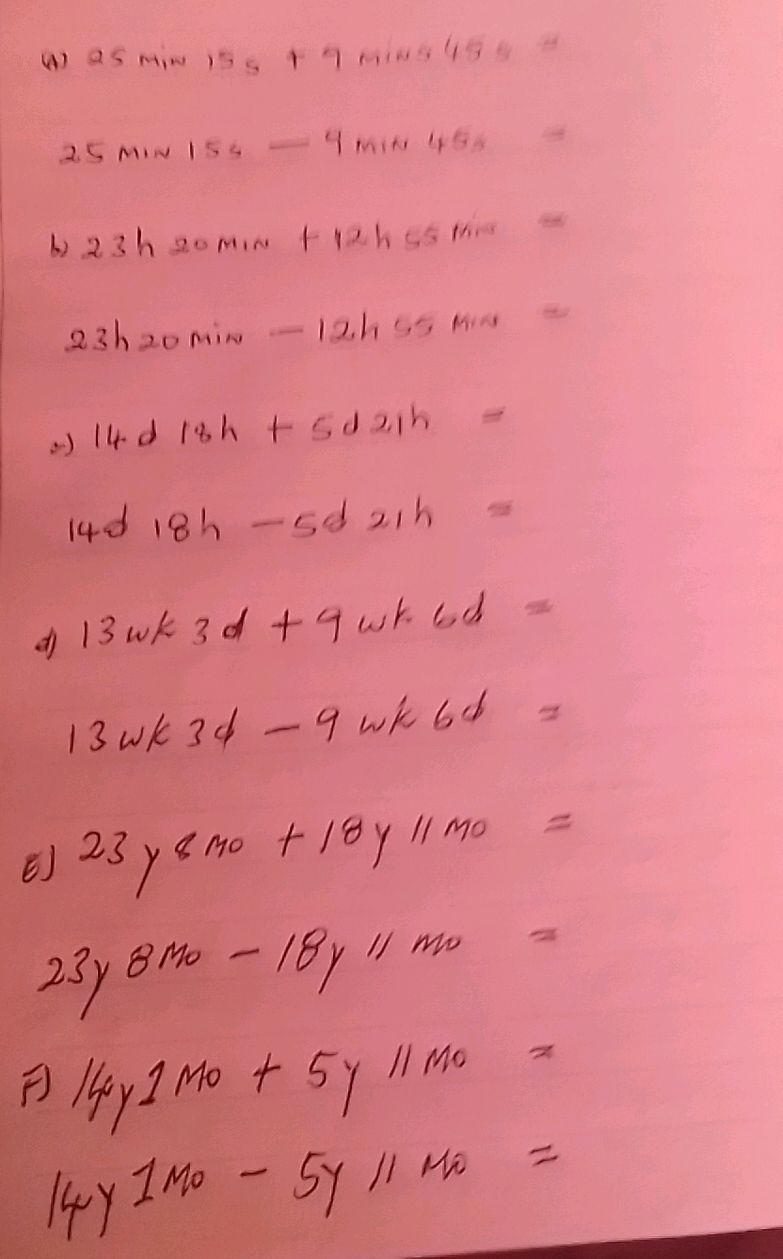 a) 25 MIN 15s + 9 MINS 45s =
25 MIN 15s — 9 MIN 45s =
b) 23h 20 MIN + 12h 55 MIN =
23h 20 MIN — 12h 55 MIN =
c) 14d 18h + 5d 21h =
14d 18h — 5d 21h =
d) 13 wk 3d + 9 wk 6d =
13 wk 3d — 9 wk 6d =
E) 23y 8 MO + 18y 11 MO =
23y 8 MO - 18y 11 MO =
F) 14y 1 MO + 5y 11 MO =
14y 1 MO - 5y 11 MO =